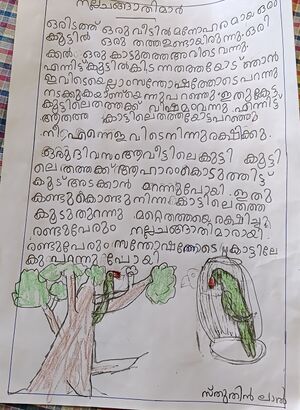 നല്ലചങ്ങാതിമാർ
ഒരിടത്ത് ഒരുവീട്ടിൽ മനോഹരമായ ഒരു
കൂട്ടിൽ ഒരു തത്തഉണ്ടായിരുന്നു. ഒരി
ക്കൽ ഒരു കാട്ടുതത്തഅവിടെ വന്നു.
എന്നിട്ട് കൂട്ടിൽകിടന്നതത്തയോട് ഞാൻ
ഇവിടെയെല്ലാംസന്തോഷത്തോടെ പറന്നു
നടക്കുകയാണ്യെന്നുപറഞ്ഞു. ഇതുകേട്ട
കൂട്ടിലെതത്തക്ക് വിഷമംവന്നു. എന്നിട്ട്
ആതത്ത കാട്ടിലെതത്തയോട്പറഞ്ഞു
നീ എന്നെഇവിടെനിന്നുരക്ഷിക്കൂ.
ഒരുദിവസംആവീട്ടിലെകുട്ടി കൂട്ടി
ലെതത്തക്ക്ആഹാരംകൊടുത്തിട്ട്
കൂട്അടക്കാൻ മറന്നുപോയി. ഇതു
കണ്ടുകൊണ്ടുനിന്നകാട്ടിലെതത്ത
കൂടുതുറന്നു മറ്റെതത്തയെരക്ഷിച്ചു.
രണ്ടുപേരും നല്ലചങ്ങാതിമാരായി
രണ്ടുപേരും സന്തോഷത്തോടെ കാട്ടിലേ
ക്കു പറന്നു പോയി
സ്തുതിൻ ലാൽ